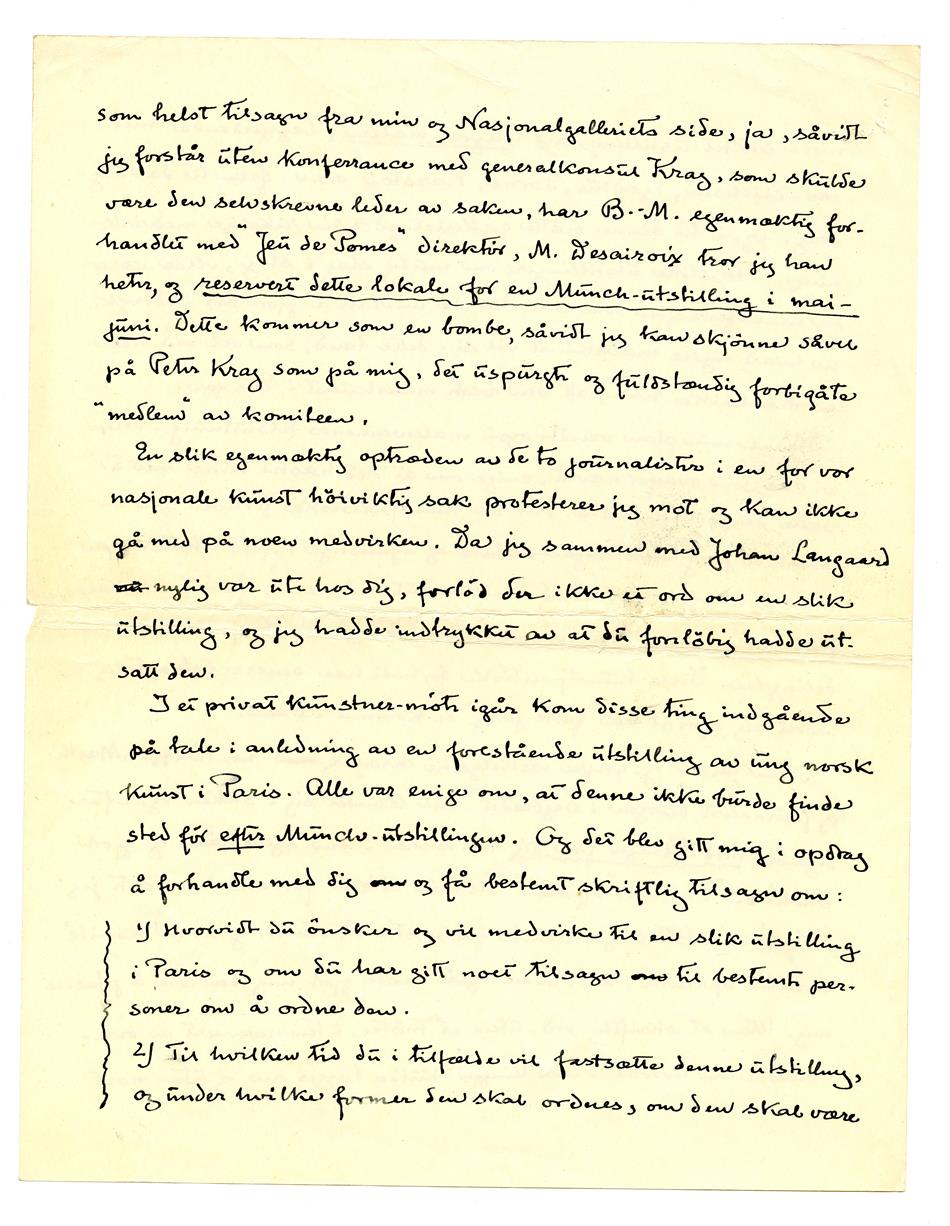 som helst tilsagn fra min og Nasjonalgalleriets side, ja, såvidt
jeg forstår uten konferrance med generalkonsul Krag, som skulde
være den selvskrevne leder av saken, har B.-M. egenmæktig for-
handlet med "Jeu de Pomes" direktør, M. Desairoix tror jeg han
heter, og reservert dette lokale for en Munch-utstilling i mai-
juni. Dette kommer som en bombe, såvidt jeg kan skjönne såvel
på Peter Krag som på mig, det uspurgte og fuldstændig forbigåte
"medlem" av komiteen.
En slik egenmæktig optræden av de to journalister i en for vor
nasjonale kunst höiviktig sak protesterer jeg mot og kan ikke
gå med på noen medvirken. Da jeg sammen med Johan Langaard
nylig var ute hos dig, forlöd der ikke et ord om en slik
utstilling, og jeg hadde indtrykket av at du foreløbig hadde ut-
satt den.
I et privat kunstner-möte igår kom disse ting indgående
på tale i anledning av en forestående utstilling av ung norsk
kunst i Paris. Alle var enige om, at denne ikke burde finde
sted för efter Munch-utstillingen. Og det blev gitt mig i opdrag
å forhandle med dig og få bestemt skriftlig tilsagn om:
1) Hvorvidt du önsker og vil medvirke til en slik utstilling
i Paris og om du har gitt noet tilsagn til bestemte per-
soner om å ordne den.
2) Til hvilken tid du i tilfælde vil fastsætte denne utstilling,
og under hvilke former den skal ordnes, om den skal være